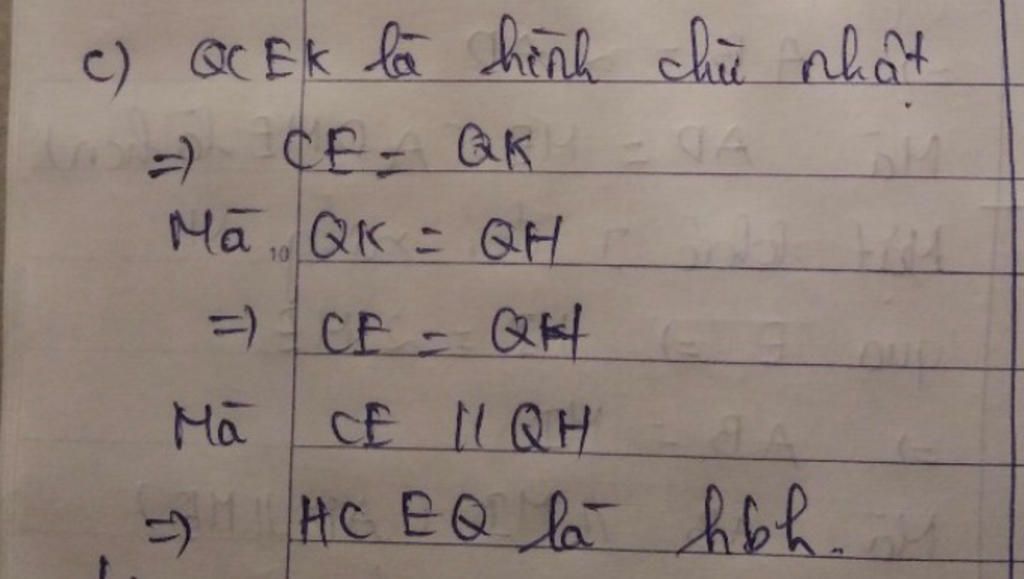 c) QCEK là hình chữ nhật
=> CE = QK
Mà QK = QH
=> CE = QH
Mà CE // QH
=> HCEQ là hbh.